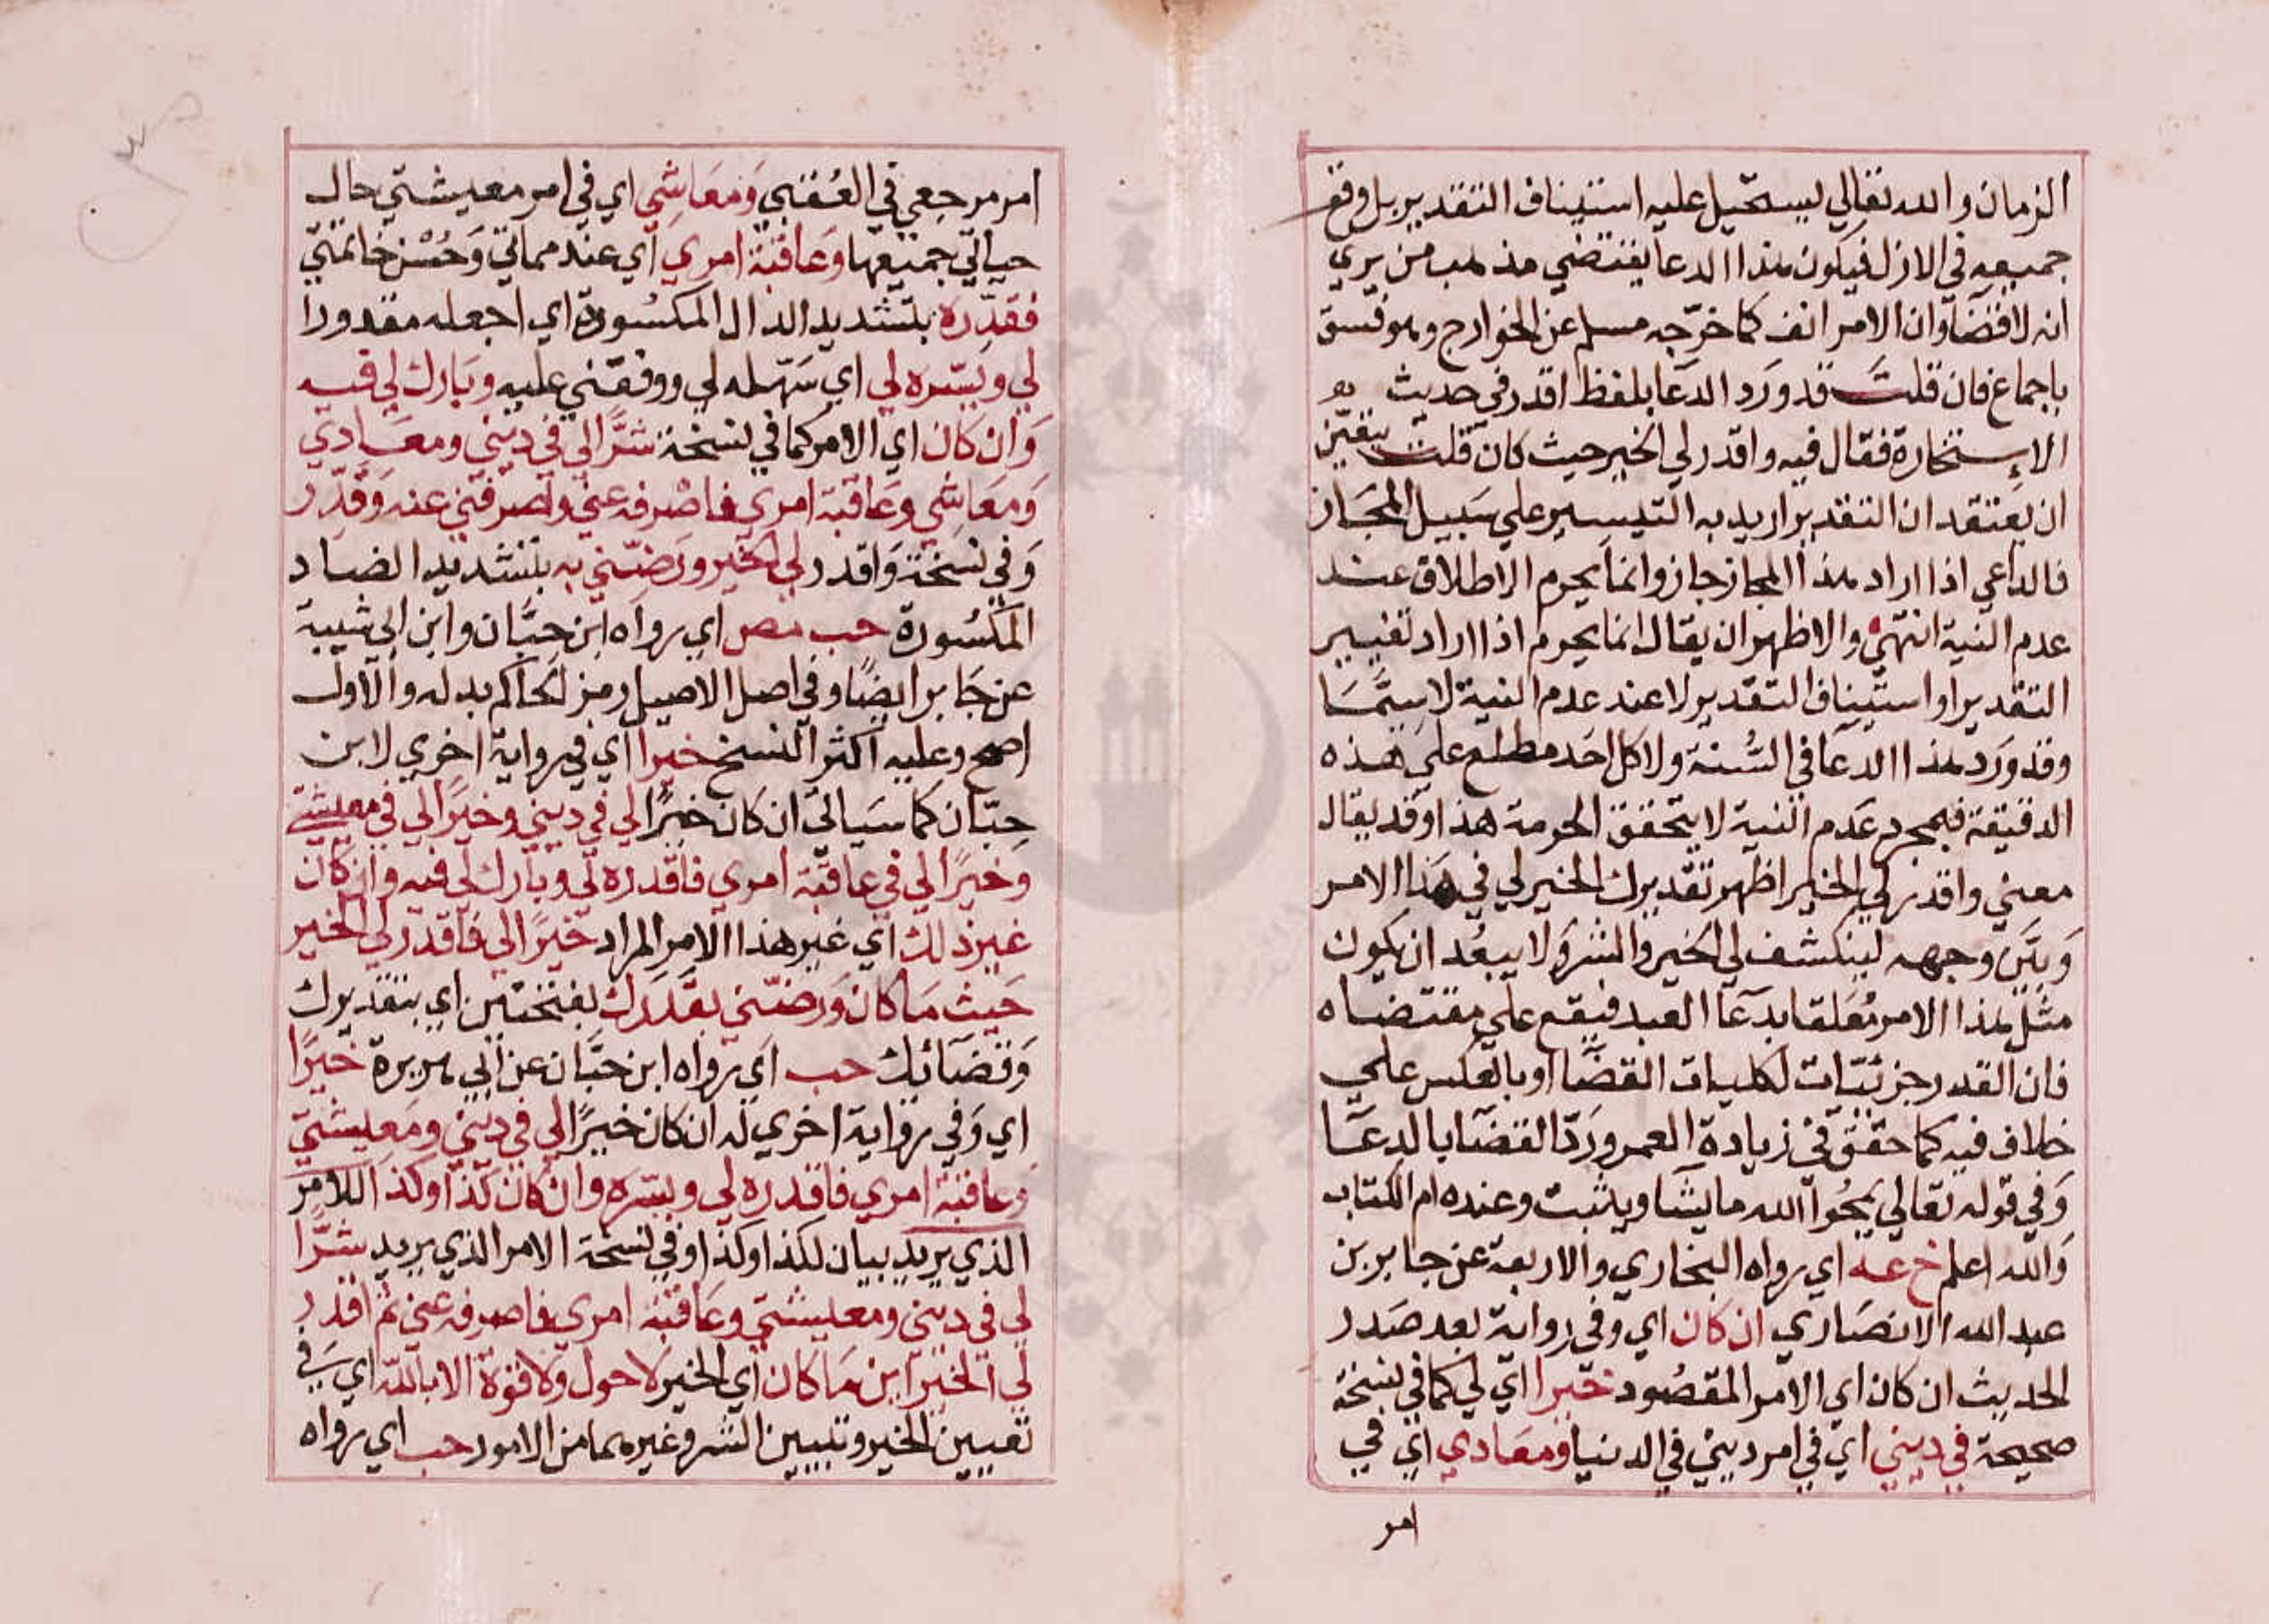 الزمان والله تعالي يستحيل عليه استيناف التقدير بل وقع
جميعه في الازل فيكون هذا الدعا يقتضي مذهب من يري
انه لا قضآ وان الامر انف كما خرّجه مسلم عن الخوارج وهو فسق
باجماع فان قلتَ قد ورد الدّعا بلفظ اقدر في حديث
الاستخارة فقال فيه واقدر لي الخير حيث كان قلت يتعيّن
ان يَعتقد ان التقدير اريد به التيسير علي سَبيل المجَاز
فالداعي اذا اراد هذا المجاز جاز وانما يحرم الاطلاق عند
عدم النية انتهيٰ والاظهر ان يقال انما يحرم اذا اراد تغيير
التقدير او استيناف التقدير لا عند عدم النية لا سيّمَا
وقد وَرَد هذا الدعَا في السُّنة ولا كل احَد مطلع علي هذه
الدقيقة فبمجرد عَدم النية لا يتحقق الحرمة هذا وقد يقال
معني واقدر لي الخير اظهر تقديرك الخير لي في هَذا الامر
وَبيَّن وجهه لينكشف لي الخير والشر وَلا يبعُد ان يكون
مثل هذا الامر مُعَلقا بدعَآ العبد فيقع علي مقتضاه
فان القدر جزئيّات لكليات القضَآ او بالعكس علي
خلاف فيه كما حقق في زيادة العمر ورَدّ القضَآ بالدعَا
وَفي قوله تعالي يمحُوا الله ما يشا ويثبت وعنده ام الكتاب
وَالله اعلم خ عه اي رواه البخاري والاربعة عن جابر بن
عبد الله الانصَاري ان كان اي وفي رواية بعد صَدر
الحديث ان كان اي الامر المقصُود خيرا اي لي كما في نسخة
صحيحة في ديني اي في امر ديني في الدنيا ومعَادي اي في
امر
امر مرجعي في العُقبي وَمعَاشِي اي في امر معيشتي حال
حياتي جميعها وَعَاقبة امري اي عند مماتي وَحُسْن خاتمتي
فقدِّره بتشديد الدال المكسُورة اي اجعله مقدورا
لي ويَسّره لي اي سَهّله لي ووفقني عليه وبَارك لي فيه
وَان كان اي الامر كما في نسخة شرًّا لي في ديني ومعَادي
وَمعَاشي وعَاقبة امري فاصْرفه عني واصرفني عنه وَقدِّر
وَفي نسخة وَاقدر لي الخير ورَضِّني به بتشديد الضاد
المكسُورة حب مص اي رواه ابن حبَّان وابن ابي شيبة
عن جَابر ايضًا وفي اصل الاصيل رمز الحَاكم بدله والاول
اصح وعليه اكثر النسخ خيرا اي في رواية اخري لابن
حبّان كما سَياتي ان كان خيرًا لي في ديني وخيرًا لي في معيشتي
وخيرًا لي في عاقبة امري فاقدره لي وبارك لي فيه وان كان
غير ذلك اي غير هذا الامر المراد خيرًا لي فاقدر لي الخير
حَيث مَا كان وَرضّني بقَدَرك بفتحتين اي بتقديرك
وَقضَآئك حب اي رواه ابن حبَّان عن ابي هريرة خيرًا
اي وَفي رواية اخري له ان كان خيرًا لي في ديني ومَعيشتي
وعاقبة امري فاقدره لي ويسّره وان كان كذا وكذا للامر
الذي يريد بيان لكذا وكذا وفي نسخة الامر الذي يريد شرًّا
لي في ديني ومعيشتي وعَاقبة امري فاصرفه عني ثم اقدر
لي الخير اين مَا كان اي الخير لا حول وَلا قوة الا بالله اي في
تعيين الخير وتبيين الشر وغيرهما من الامور حب اي رواه